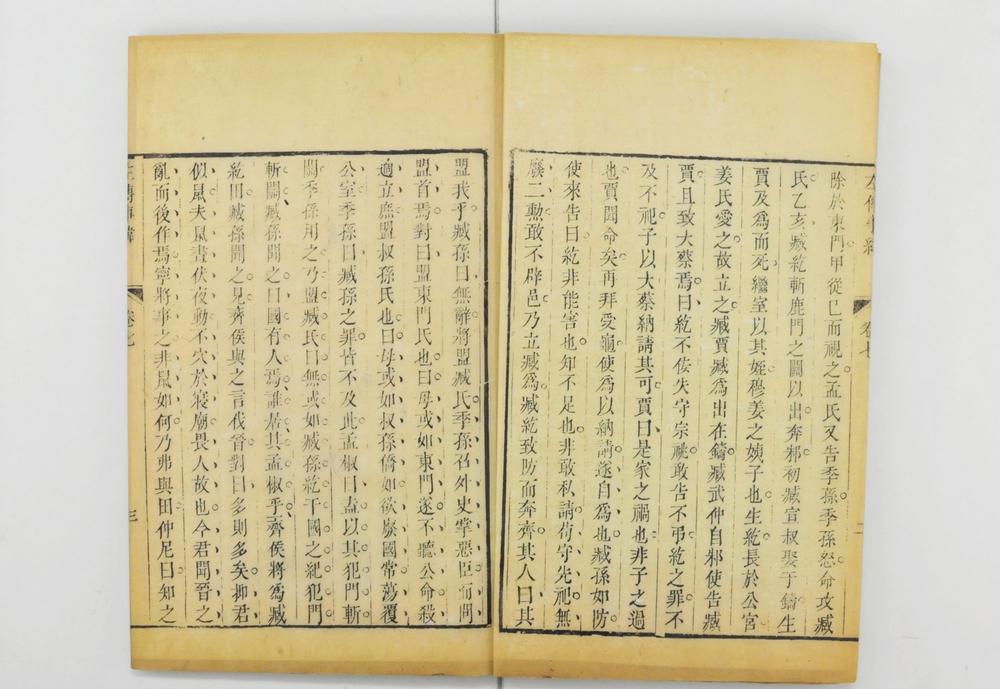 左傳事緯
卷七
二
除於東門甲從巳而視之孟氏又告季孫季孫怒命攻臧
氏乙亥臧紇斬鹿門之關以出奔邾初臧宣叔娶于鑄生
賈及為而死繼室以其姪穆姜之姨子也生紇長於公宮
姜氏愛之故立之臧賈臧為出在鑄臧武仲自邾使告臧
賈且致大蔡焉曰紇不佞失守宗祧敢告不弔紇之罪不
及不祀子以大蔡納請其可賈曰是家之禍也非子之過
也賈聞命矣再拜受龜使為以納請遂自為也臧孫如防
使來告曰紇非能害也知不足也非敢私請苟守先祀無
廢二勳敢不辟邑乃立臧為臧紇致防而奔齊其人曰其
盟我乎臧孫曰無辭將盟臧氏季孫召外史掌惡臣而問
盟首焉對曰盟東門氏也曰毋或如東門遂不聽公命殺
適立庶盟叔孫氏也曰毋或如叔孫僑如欲廢國常蕩覆
公室季孫曰臧孫之罪皆不及此孟椒曰盍以其犯門斬
關季孫用之乃盟臧氏曰無或如臧孫紇干國之紀犯門
斬關臧孫聞之曰國有人焉誰居其孟椒乎齊侯將為臧
紇田臧孫聞之見齊侯與之言伐晉對曰多則多矣抑君
似鼠夫鼠晝伏夜動不穴於寢廟畏人故也今君聞晉之
亂而後作焉寧將事之非鼠如何乃弗與田仲尼曰知之
左傳事緯
卷七
三